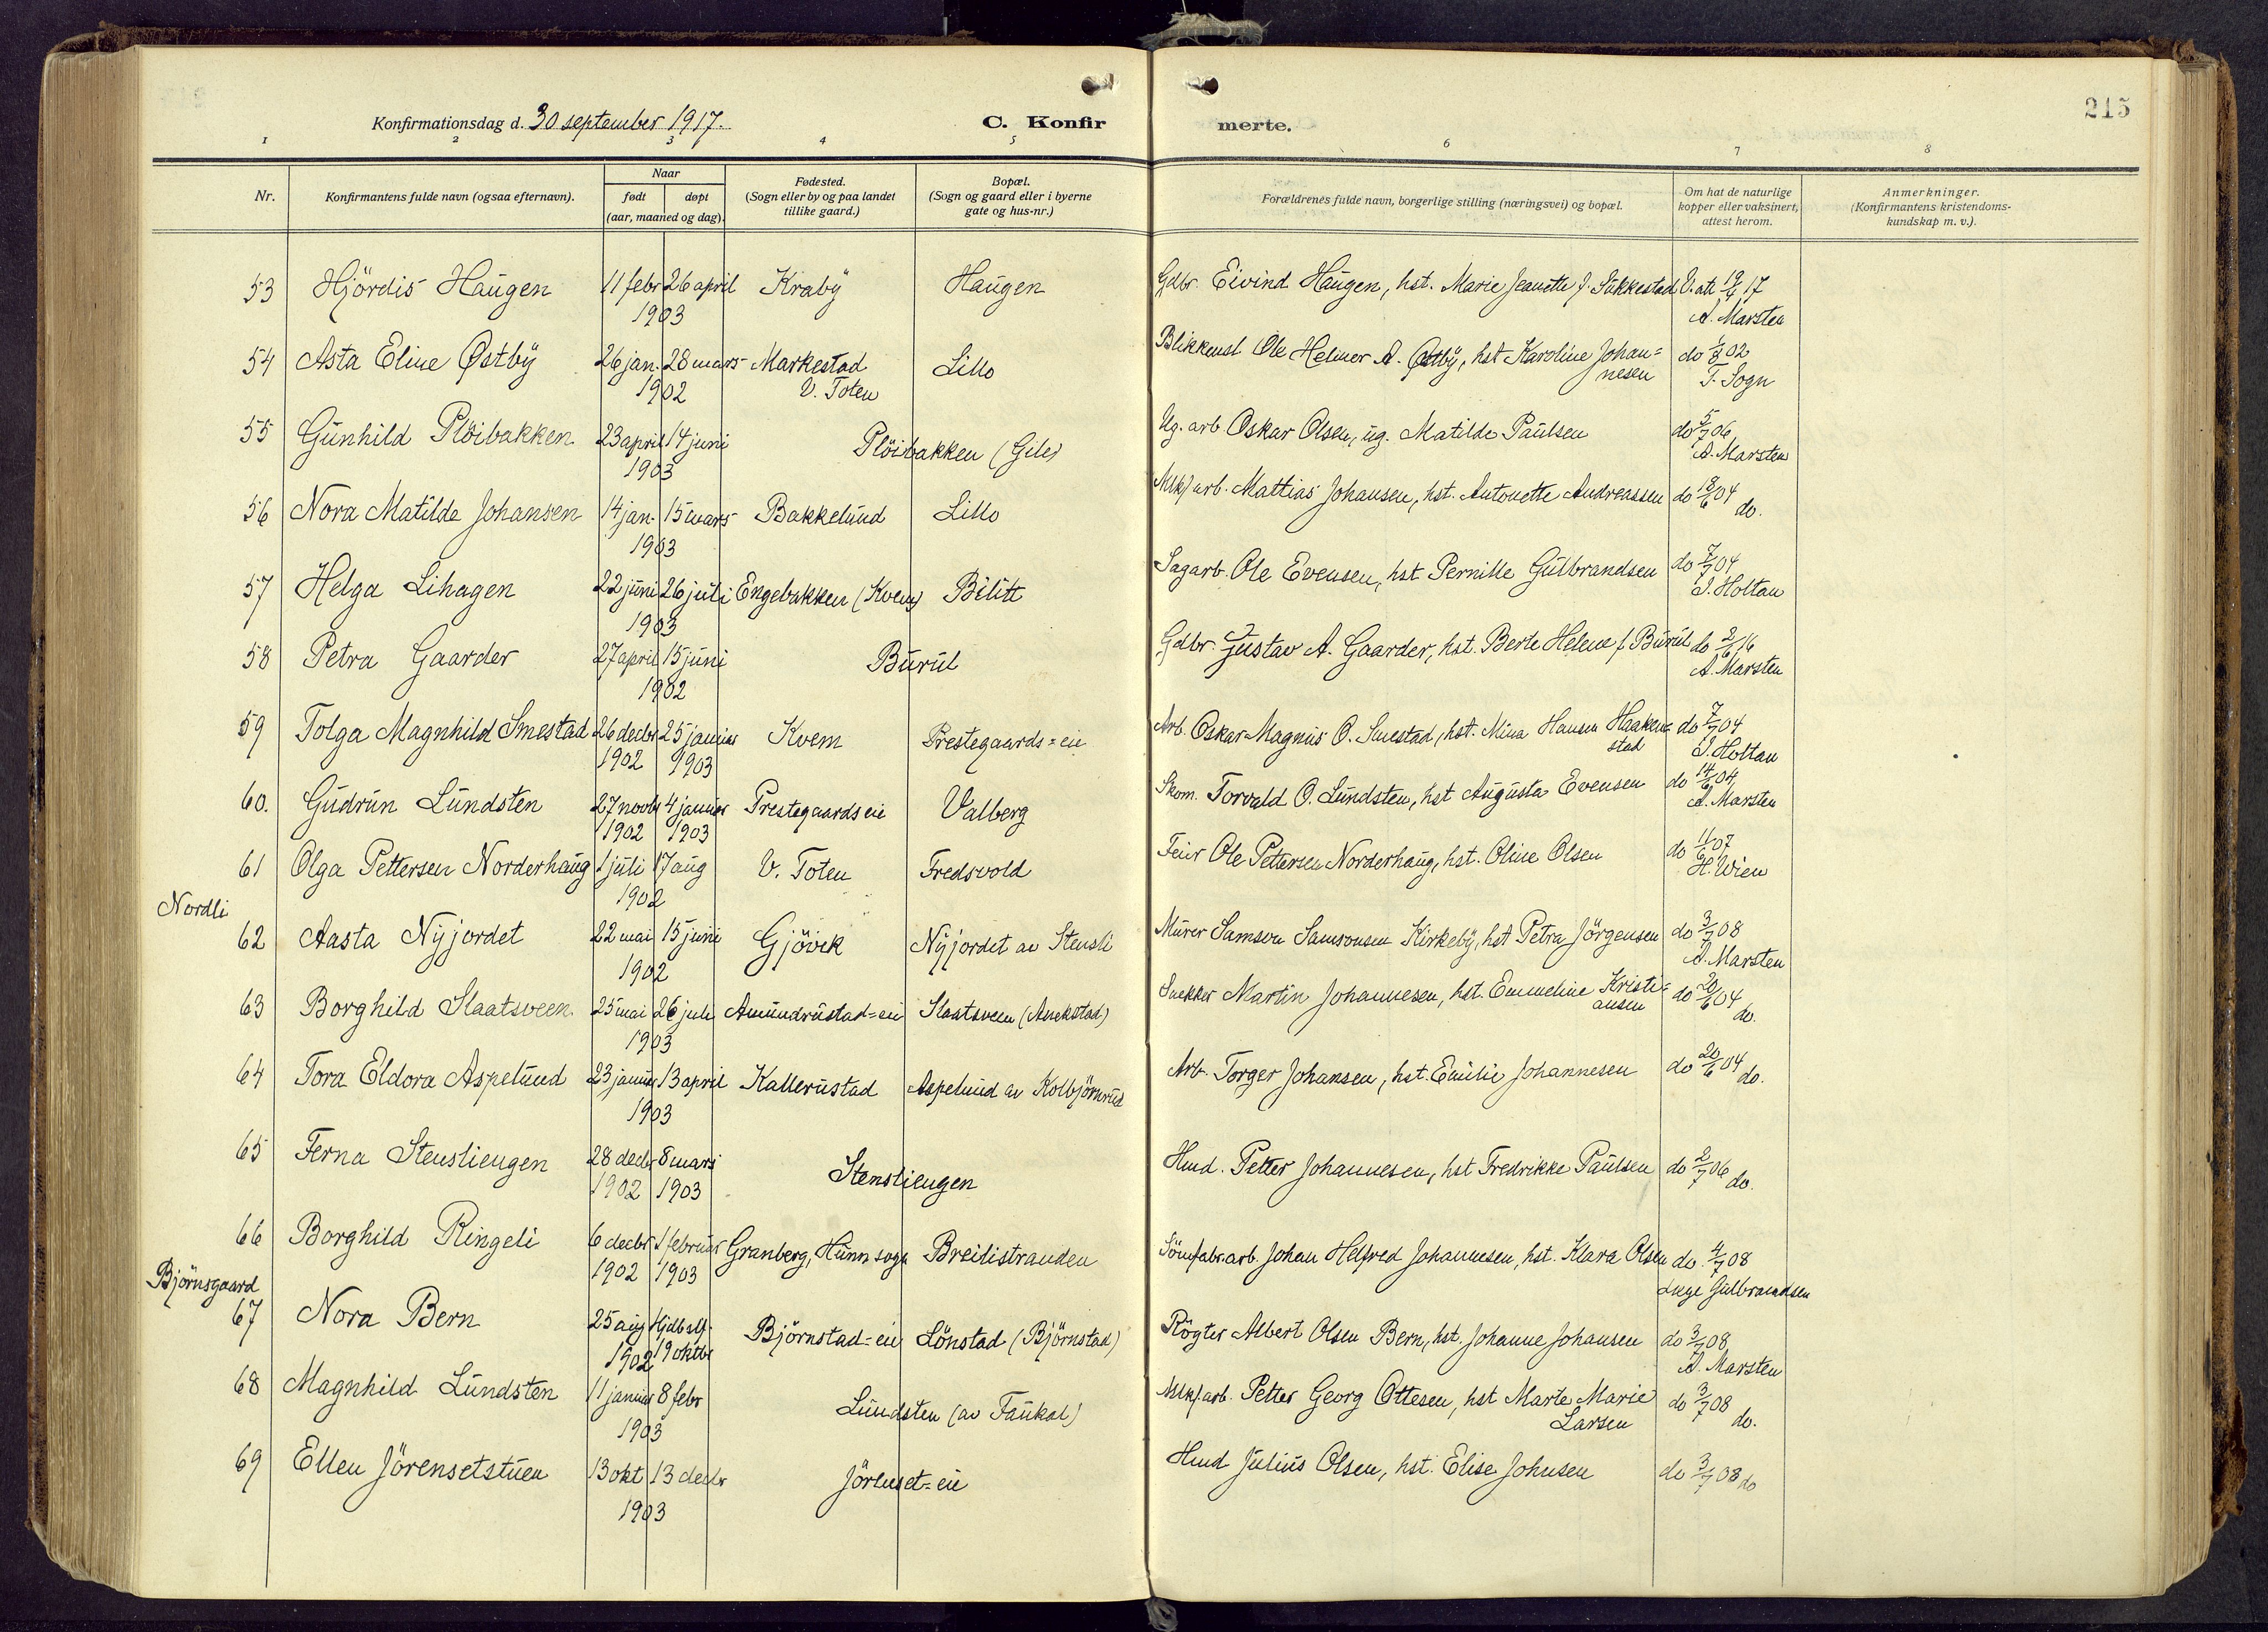 215
Konfirmationsdag d. 30 september 1917. C. Konfirmerte.
1 2 3 4 5 6 7 8
Nr. Konfirmantens fulde navn (ogsaa efternavn). Naar født døpt (aar, maaned og dag). Fødested. (Sogn eller by og paa landet tillike gaard.) Bopæl. (Sogn og gaard eller i byerne gate og hus-nr.) Forældrenes fulde navn, borgerlige stilling (næringsvei) og bopæl. Om hat de naturlige kopper eller vaksinert, attest herom. Anmerkninger. (Konfirmantens kristendomskundskap m. v.).
53 Hjördis Haugen 11 febr 26 april Kraby Haugen Gdbr. Eivind Haugen, hst. Marie Jeanette f. Sukkestad V. att 19/6 17
1903 A. Marsten
54 Asta Eline Østby 26 jan. 28 mars Markestad Lillo Blikkensl Ole Helmer A. Østby, hst Karoline Johan= do 1/8 02
1902 V. Toten nesen T. Sogn
55 Gunhild Plöibakken 23 april 14 juni Plöibakken (Gile) Ug. arb Oskar Olsen, ug. Matilde Paulsen do 5/7 06
1903 A. Marsten
56 Nora Matilde Johansen 14 jan. 15 mars Bakkelund Lillo Mlkf arb. Mattias Johansen, hst. Antonette Andreassen do 18/6 04 do.
1903
57 Helga Lihagen 22 juni 26 juli Engebakken (Kvem) Bilitt Sagarb. Ole Evensen, hst Pernille Gulbrandsen do 7/7 04
1903 I. Holtan
58 Petra Gaarder 27 april 15 juni Burul Gdbr. Gustav A. Gaarder, hst. Berte Helene f. Burul do 2/6 16
1902 A. Marsten
59 Tolga Magnhild Smestad 26 decbr 25 januar Kvem Prestegaards=eie Arb. Oskar Magnus O. Smestad, hst. Mina Hansen Haaken= do 7/7 04
1902 1903 stad I. Holtan
60. Gudrun Lundsten 27 novbr 4 januar Prestegaards eie Valberg Skom. Torvald O. Lundsten, hst Augusta Evensen do 14/6 04
1902 1903 A. Marsten
61 Olga Pettersen Norderhaug 1 juli 17 aug V. Toten Fredsvold Feier Ole Pettersen Norderhaug, hst. Oline Olsen do 11/6 07
1902 H. Wien
Nordli
62 Aasta Nyjordet 22 mai 15 juni Gjövik Nyjordet av Stensli Murer Samson Samsonsen Kirkeby, hst Petra Jörgensen do 3/7 08
1902 A. Marsten
63 Borghild Slaatsveen 25 mai 26 juli Amundrustad=eie Slaatsveen (Anekstad) Snekker Martin Johannesen, hst. Emmeline Kristi= do 20/6 04
1903 ansen do.
64 Tora Eldora Aspelund 23 januar 13 april Kallerustad Aspelund av Kolbjörnrud Arb. Torger Johansen, hst. Emilie Johannesen do 20/6 04 do.
1903
65 Ferna Stensliengen 28 decbr 8 mars Stensliengen Hmd. Petter Johannesen, hst Fredrikke Paulsen do 2/7 06 do.
1902 1903
66 Borghild Ringeli 6 decbr 1 februar Granberg, Hunn sogn Breilistranden Sömfabr.arb. Johan Helfred Johannesen, hst. Klara Olsen do. 4/7 08
1902 1903 Læge Gulbrandsen
Björnsgaard
67 Nora Bern 25 aug Hjdb alf. Björnstad=eie Lönstad (Björnstad) Rögter Albert Olsen Bern, hst. Johanne Johansen do 3/7 08
1902 19 oktbr A. Marsten
68 Magnhild Lundsten 11 januar 8 febr Lundsten (av Faukal) Mlkf.arb. Petter Georg Ottesen, hst Marte Marie do 3/7 08
1903 Larsen do.
69 Ellen Jörensetstuen 13 okt 13 decbr Jörenset=eie Hmd Julius Olsen, hst. Elise Johnsen do 3/7 08 do
1903